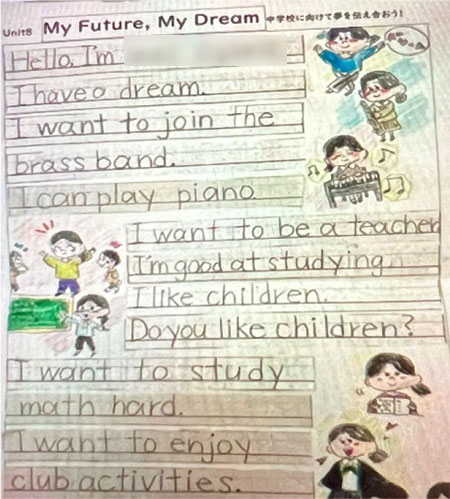 Unit8 My Future, My Dream 中学校に向けて夢を伝え合おう!
Hello, I'm
I have a dream.
I want to join the
brass band.
I can play piano
I want to be a teacher
I'm good at studying.
I like children.
Do you like children?
I want to study
math hard.
I want to enjoy
club activities.